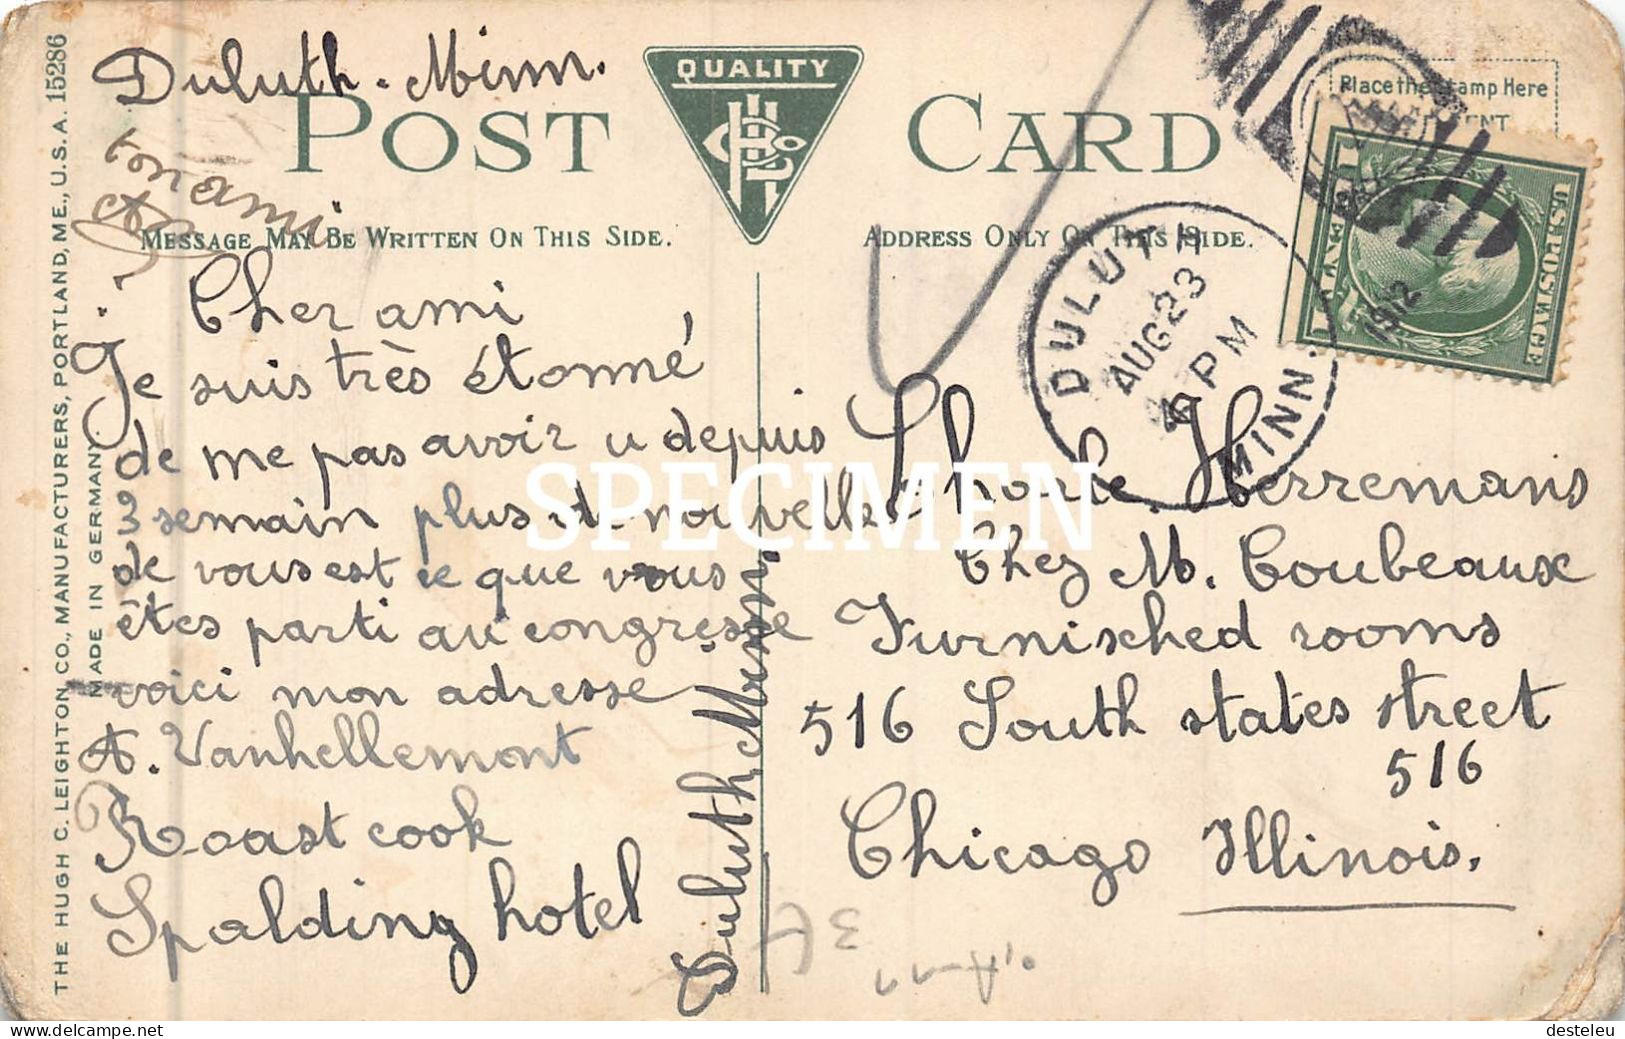 Duluth. Minn.
QUALITY
POST CARD
Place the Stamp Here
ton ami
A
MESSAGE MAY BE WRITTEN ON THIS SIDE.
ADDRESS ONLY ON THIS SIDE.
DULUTH
AUG 23
PM
1912
MINN.
U.S. POSTAGE
Cher ami
Je suis très étonné
de me pas avoir u depuis
3 semain plus de nouvelle
de vous est ce que vous
êtes parti au congresse
voici mon adresse
A. Vanhellemont
Roast cook
Spalding hotel
Duluth, Minn.
Charle Herremans
Chez M. Coubeaux
Furnisched rooms
516 South states street
516
Chicago Illinois.
SPECIMEN
3€
THE HUGH C. LEIGHTON CO., MANUFACTURERS, PORTLAND, ME., U.S.A. 15286
MADE IN GERMANY
www.delcampe.net
desteleu